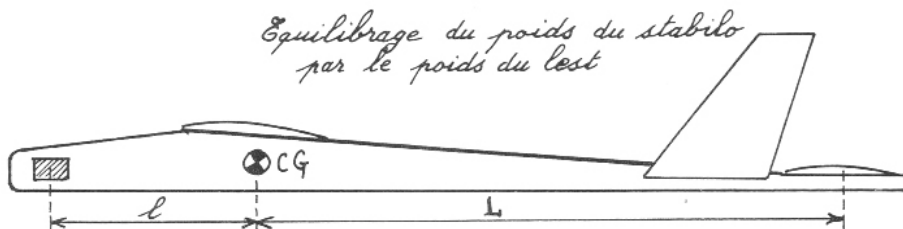 Equilibrage du poids du stabilo
par le poids du lest
CG
l
L